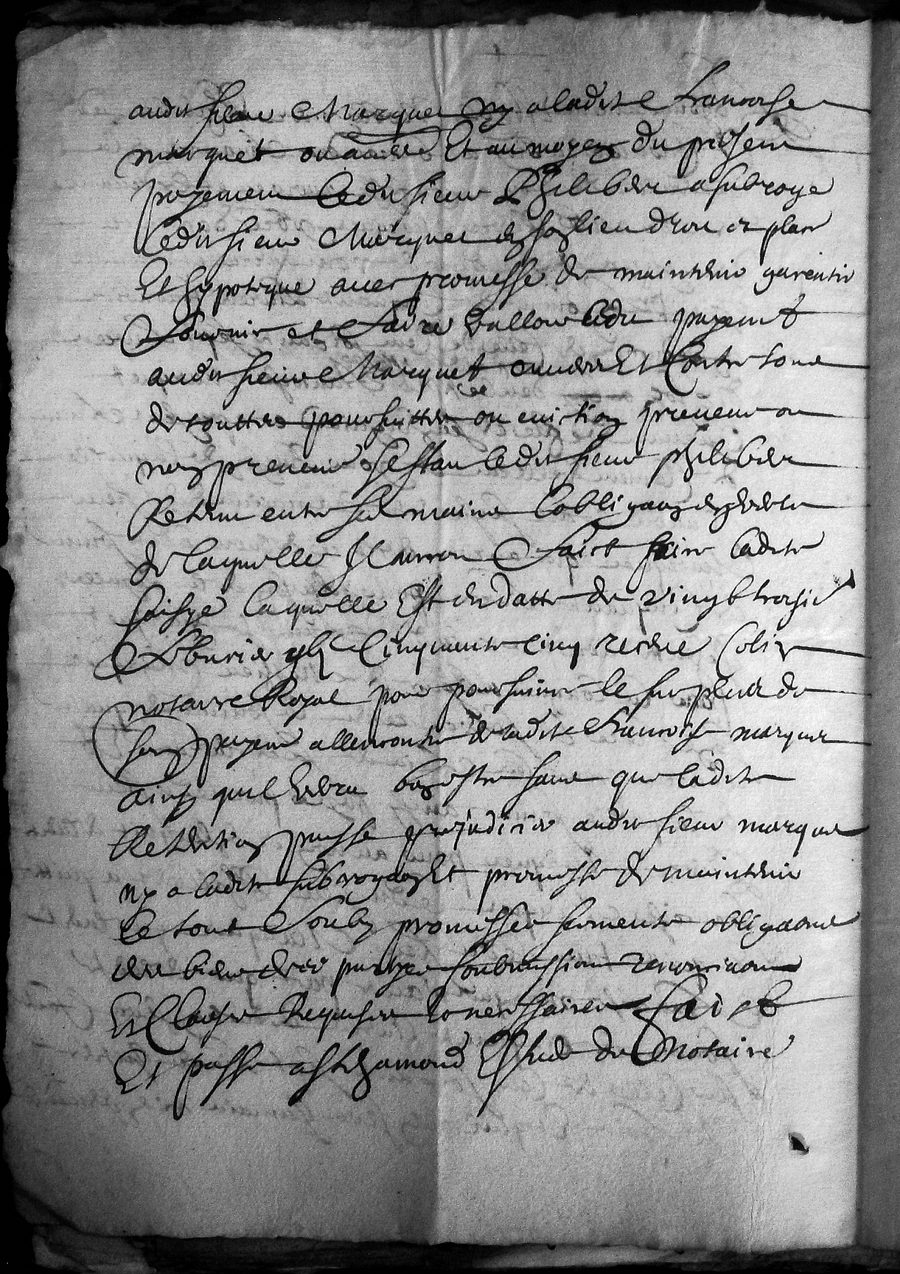 audit sieur Marquet ny a ladite francoise
marquet ou autre Et au moyen du present
payement ledit sieur Philiber a subroge
ledit sieur Marquet en son lieu droit et place
Et hypoteque avec promesse de maintenir garentir
fournir et faire valloir ledit payement
audit sieur Marquet envers Et Contre tous
de touttes poursuittes ou eviction prevenue ou
non prevenue sestant ledit sieur philiber
Retenu entre ses mains lobligaon en vertu
de laquelle Il auroit faict faire ladite
saisye laquelle Est en datte du vingt troisie
febvrier gbj Cinquante Cinq recue Colin
notaire Royal pour poursuivre le surplus de
son payement allencontre de ladite francoise marquet
ainsy quil verra bon estre sans que ladite
Retention puisse prejudicier audit sieur marquet
ny a ladite subrogaon Et promesse de maintenir
le tout soubz promesses serments obligaons
des biens desd partyes soubmissions renonciaons
Et Clauses Requises & necessaires faict
Et passe a St chamond Estude du Notaire